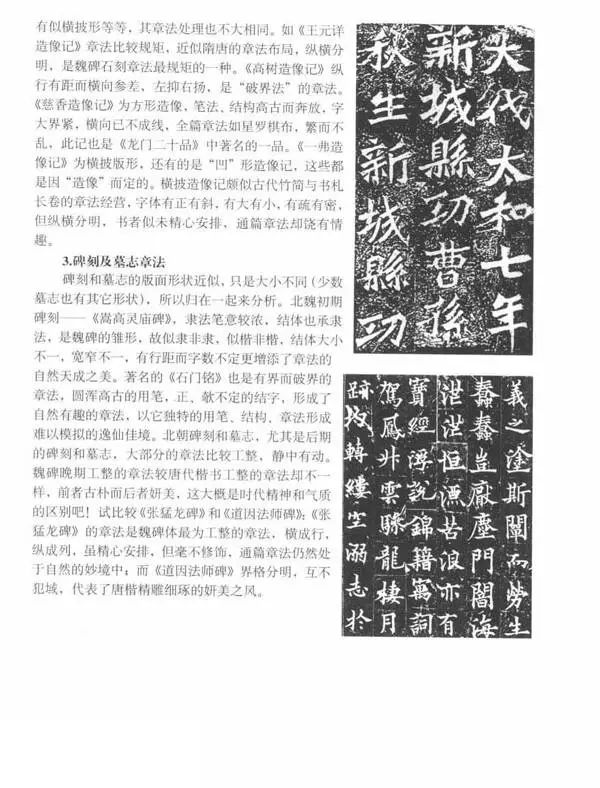 有似横披形等等，其章法处理也不大相同。如《王元详
造像记》章法比较规矩，近似隋唐的章法布局，纵横分
明，是魏碑石刻章法最规矩的一种。《高树造像记》纵
行有距而横向参差、左抑右扬，是“破界法”的章法。
《慈香造像记》为方形造像，笔法、结构高古而奔放，字
大界紧，横向已不成线，全篇章法如星罗棋布，繁而不
乱，此记也是《龙门二十品》中著名的一品。《一弗造
像记》为横披版形，还有的是“凹”形造像记，这些都
是因“造像”而定的。横披造像记颇似古代竹简与书札
长卷的章法经营，字体有正有斜，有大有小，有疏有密，
但纵横分明，书者似未精心安排，通篇章法却饶有情
趣。
3.碑刻及墓志章法
碑刻和墓志的版面形状近似，只是大小不同（少数
墓志也有其它形状），所以归在一起来分析。北魏初期
碑刻——《嵩高灵庙碑》，隶法笔意较浓，结体也承隶
法，是魏碑的雏形，故似隶非隶，似楷非楷，结体大小
不一，宽窄不一，有行距而字数不定更增添了章法的
自然天成之美。著名的《石门铭》也是有界而破界的
章法，圆浑高古的用笔，正、欹不定的结字，形成了
自然有趣的章法，以它独特的用笔、结构、章法形成
难以模拟的逸仙佳境。北朝碑刻和墓志，尤其是后期
的碑刻和墓志，大部分的章法比较工整，静中有动。
魏碑晚期工整的章法较唐代楷书工整的章法却不一
样，前者古朴而后者妍美，这大概是时代精神和气质
的区别吧！试比较《张猛龙碑》和《道因法师碑》：《张
猛龙碑》的章法是魏碑体最为工整的章法，横成行，
纵成列，虽精心安排，但毫不修饰，通篇章法仍然处
于自然的妙境中；而《道因法师碑》界格分明，互不
犯域，代表了唐楷精雕细琢的妍美之风。
大代太和七年
新城縣功曹孫
秋生新城縣功
義之塗斯闡而勞生
蠢蠢豈厭塵門闇海
茫茫恒漂苦浪亦有
寶經浮說錦籍寓詞
駕鳳升雲驂龍棲月
跡均轉縷空溺志於